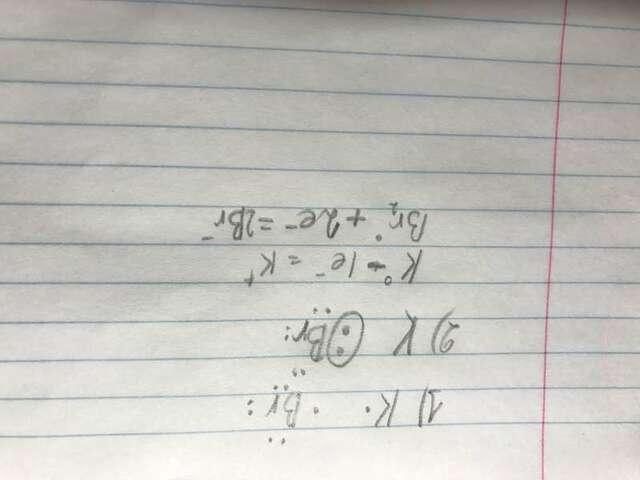 1) K· ·Br:
2) K :Br:
K⁰ - 1e⁻ = K⁺
Br₂⁰ + 2e⁻ = 2Br⁻